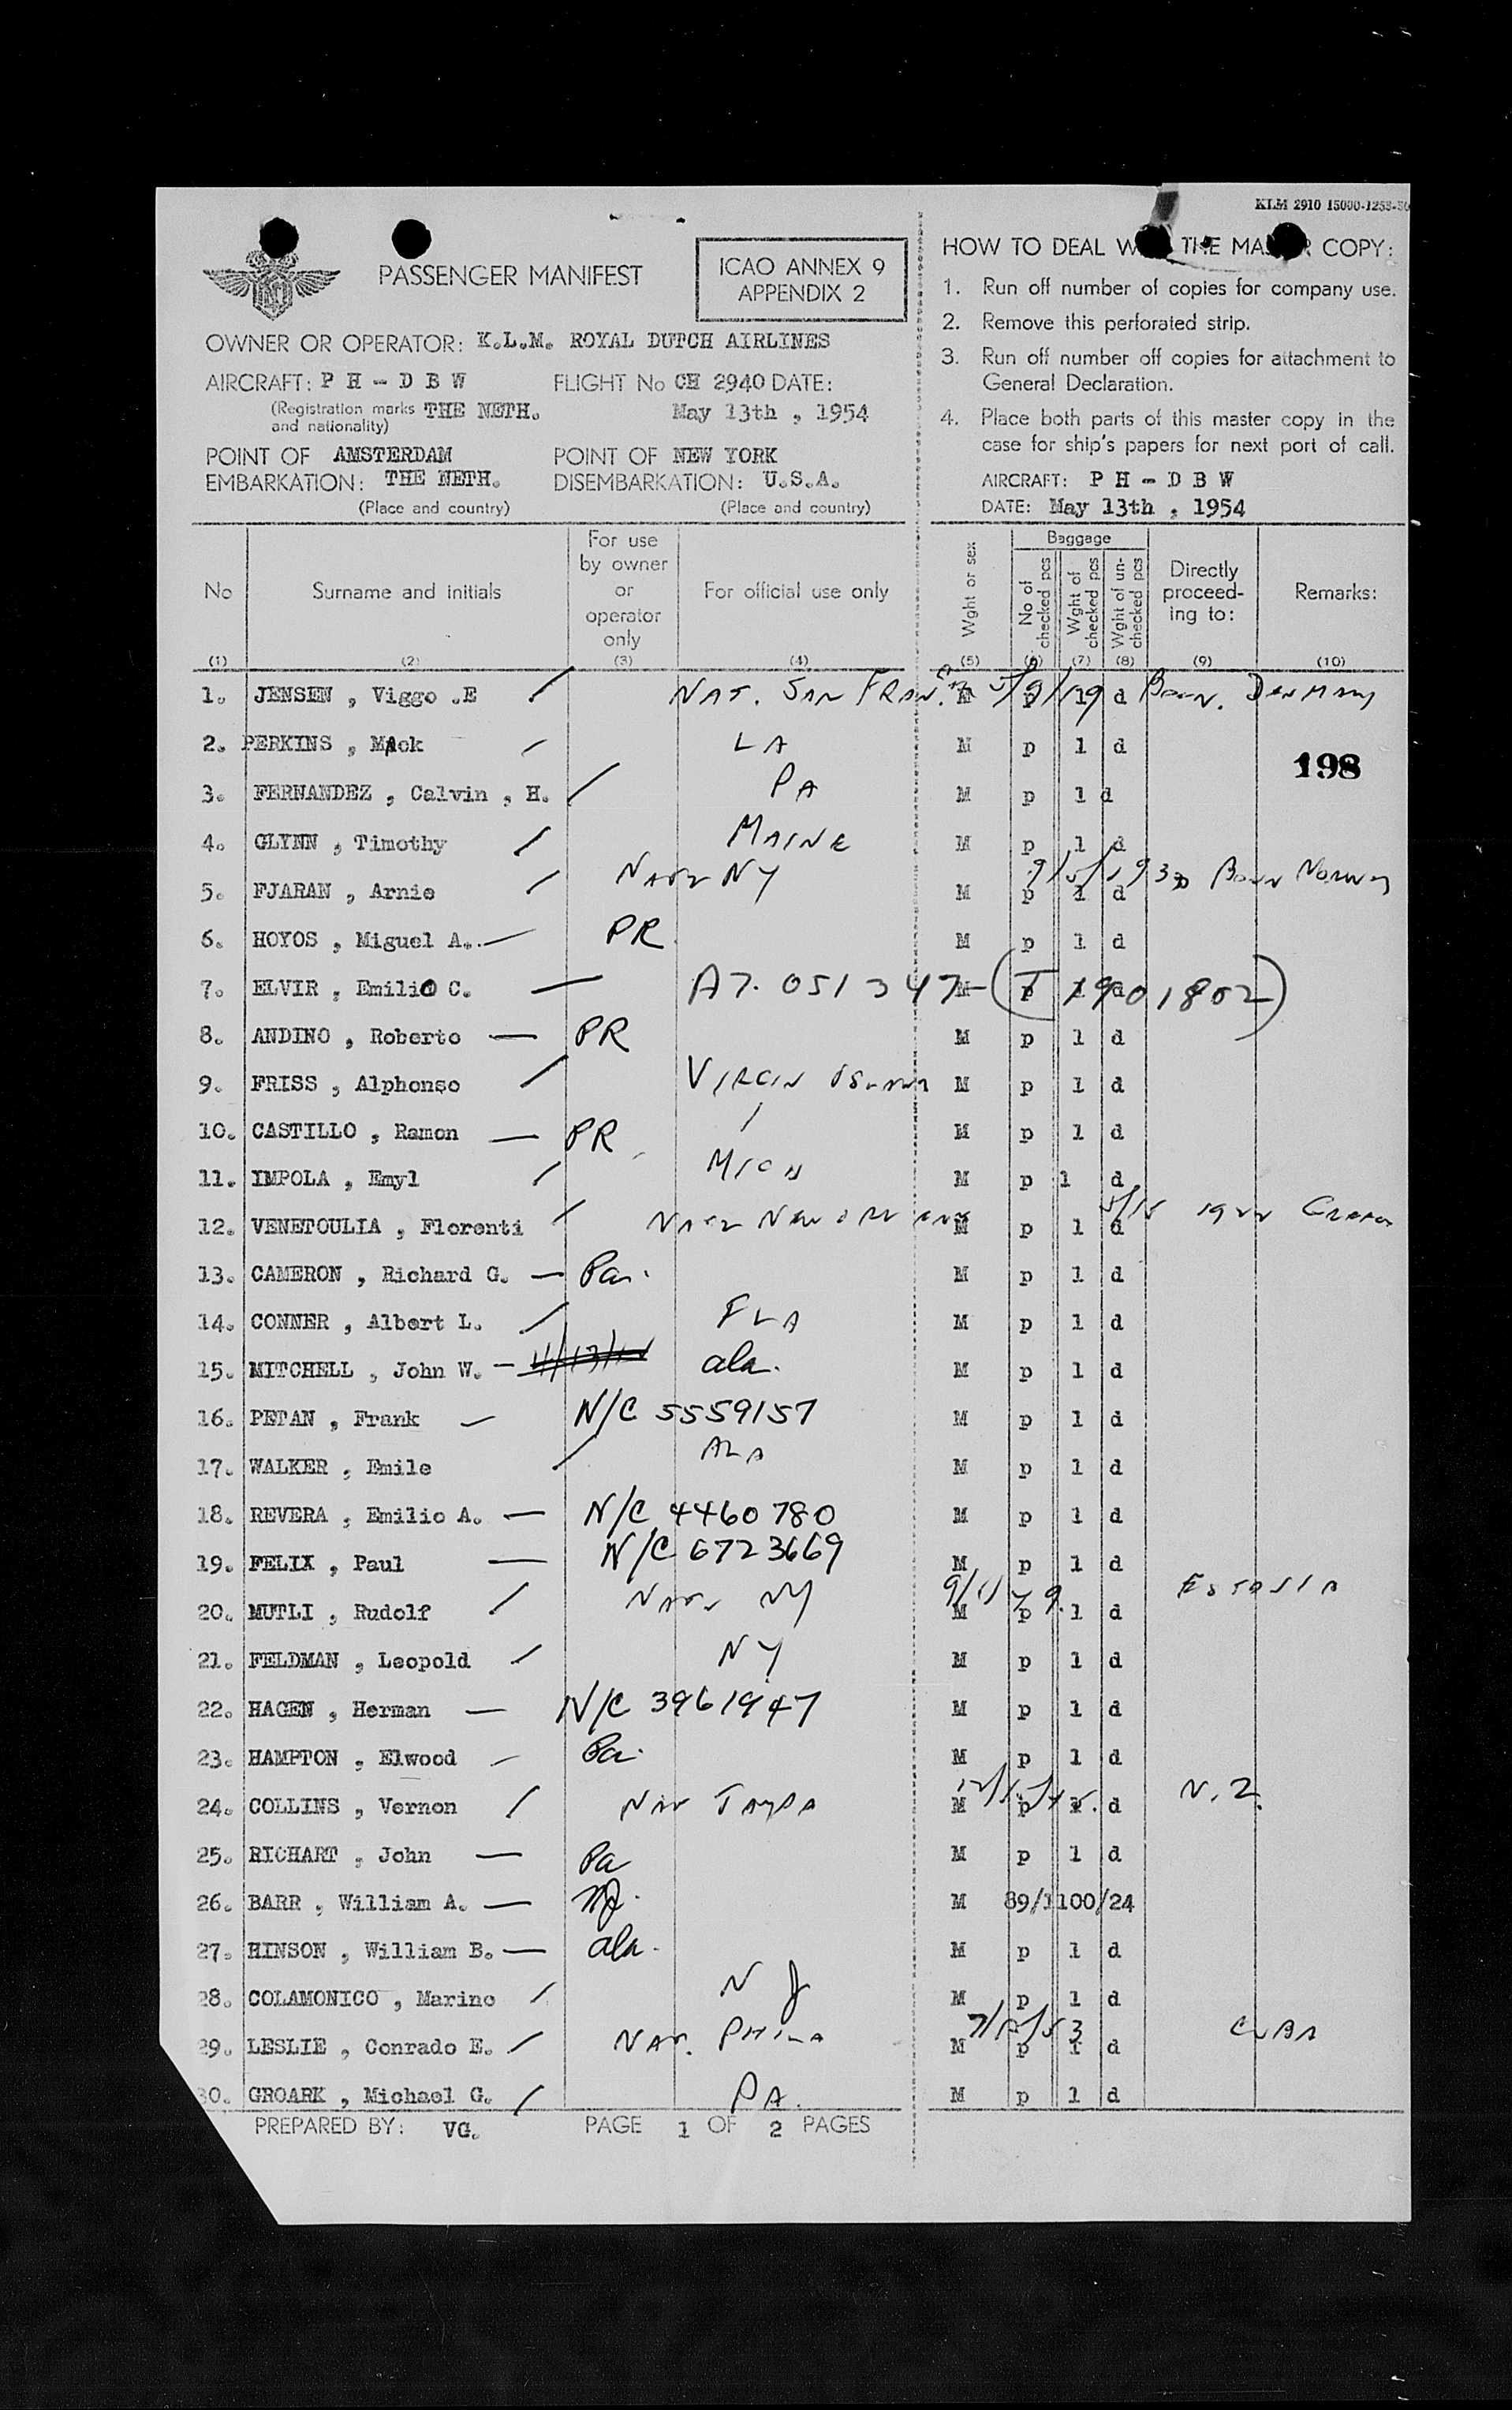 KLM 2910 15000-1253-
PASSENGER MANIFEST
ICAO ANNEX 9
APPENDIX 2
OWNER OR OPERATOR: K.L.M. ROYAL DUTCH AIRLINES
AIRCRAFT: P H - D B W FLIGHT No CH 2940 DATE:
(Registration marks THE NETH. May 13th , 1954
and nationality)
POINT OF AMSTERDAM POINT OF NEW YORK
EMBARKATION: THE NETH. DISEMBARKATION: U.S.A.
(Place and country) (Place and country)
HOW TO DEAL W THE MA R COPY:
1. Run off number of copies for company use.
2. Remove this perforated strip.
3. Run off number off copies for attachment to
General Declaration.
4. Place both parts of this master copy in the
case for ship's papers for next port of call.
AIRCRAFT: P H - D B W
DATE: May 13th , 1954
No Surname and initials For use by owner or operator only For official use only Wght or sex Baggage No of checked pcs Wght of checked pcs Wght of un-checked pcs Directly proceed-ing to: Remarks:
(1) (2) (3) (4) (5) (6) (7) (8) (9) (10)
1. JENSEN , Viggo .E NAT. SAN FRAN. d BORN. DENMARK
2. PERKINS , MAck LA M p 1 d
198
3. FERNANDEZ , Calvin , H. PA M p 1 d
4. GLYNN , Timothy MAINE M p 1 d
5. FJARAN , Arnie NY M p 1 d BORN NORWAY
6. HOYOS , Miguel A. PR. M p 1 d
7. ELVIR , EmiliO C. A7. 051 347 M p 1 d
8. ANDINO , Roberto PR M p 1 d
9. FRISS , Alphonso VIRGIN ISLANDS M p 1 d
10. CASTILLO , Ramon PR M p 1 d
11. IMPOLA , Emyl MICH M p 1 d
12. VENETOULIA , Florenti M p 1 d
13. CAMERON , Richard G. Pa. M p 1 d
14. CONNER , Albert L. FLA M p 1 d
15. MITCHELL , John W. ala. M p 1 d
16. PETAN , Frank N/C 5559157 M p 1 d
17. WALKER , Emile ALA M p 1 d
18. REVERA , Emilio A. N/C 4460780 M p 1 d
19. FELIX , Paul N/C 6723669 M p 1 d
20. MUTLI , Rudolf NY M p 1 d
21. FELDMAN , Leopold NY M p 1 d
22. HAGEN , Herman N/C 3961947 M p 1 d
23. HAMPTON , Elwood Pa. M p 1 d
24. COLLINS , Vernon TAMPA M p 1 d N.Z.
25. RICHART , John Pa M p 1 d
26. BARR , William A. M 89/1100/24
27. HINSON , William B. ala. M p 1 d
28. COLAMONICO , Marino N J M p 1 d
29. LESLIE , Conrado E. NAT. PHILA M p 1 d CUBA
30. GROARK , Michael G. PA. M p 1 d
PREPARED BY: VG. PAGE 1 OF 2 PAGES